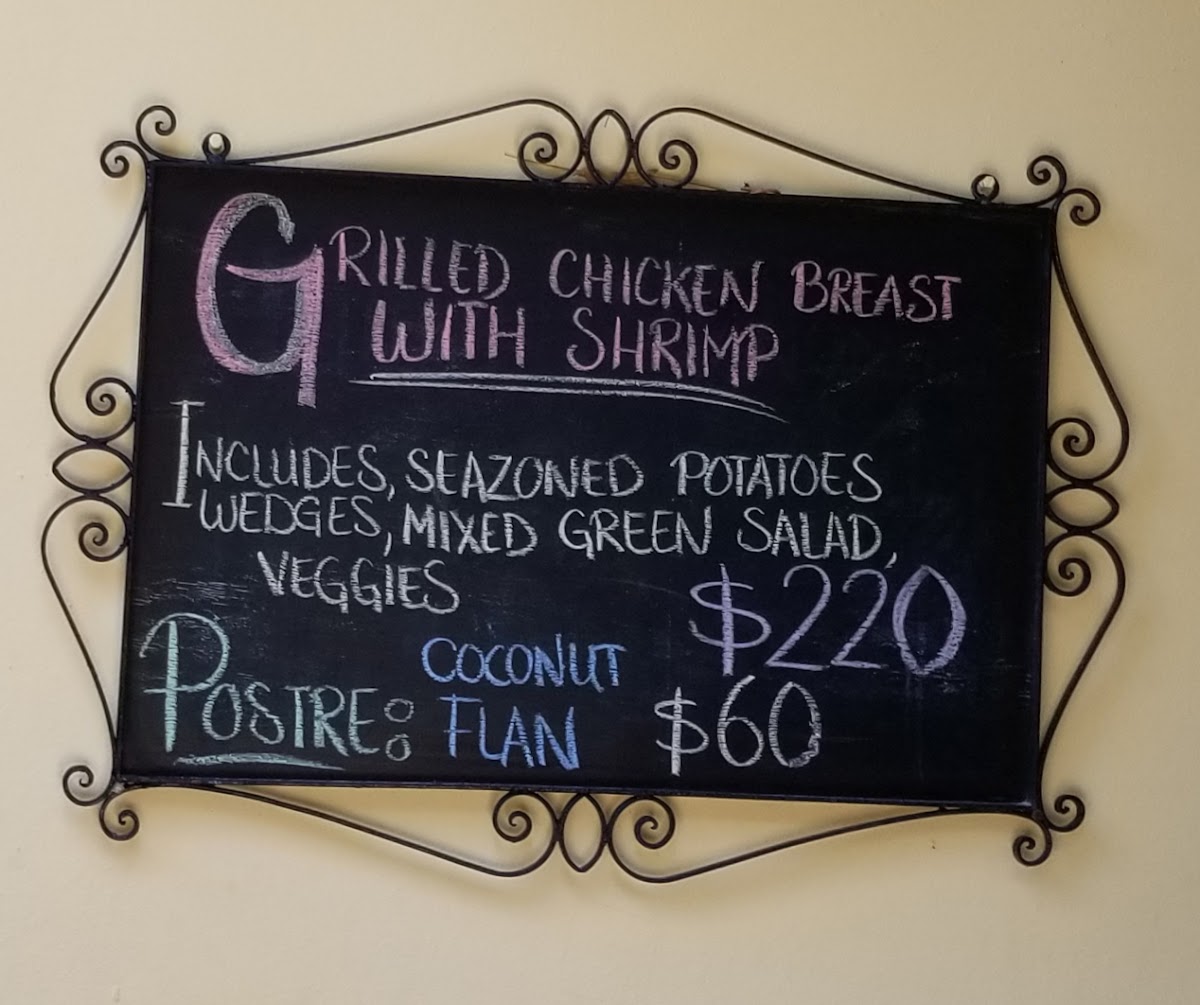 GRILLED CHICKEN BREAST
WITH SHRIMP
INCLUDES, SEAZONED POTATOES
WEDGES, MIXED GREEN SALAD,
VEGGIES
$220
POSTRE: COCONUT
FLAN $60